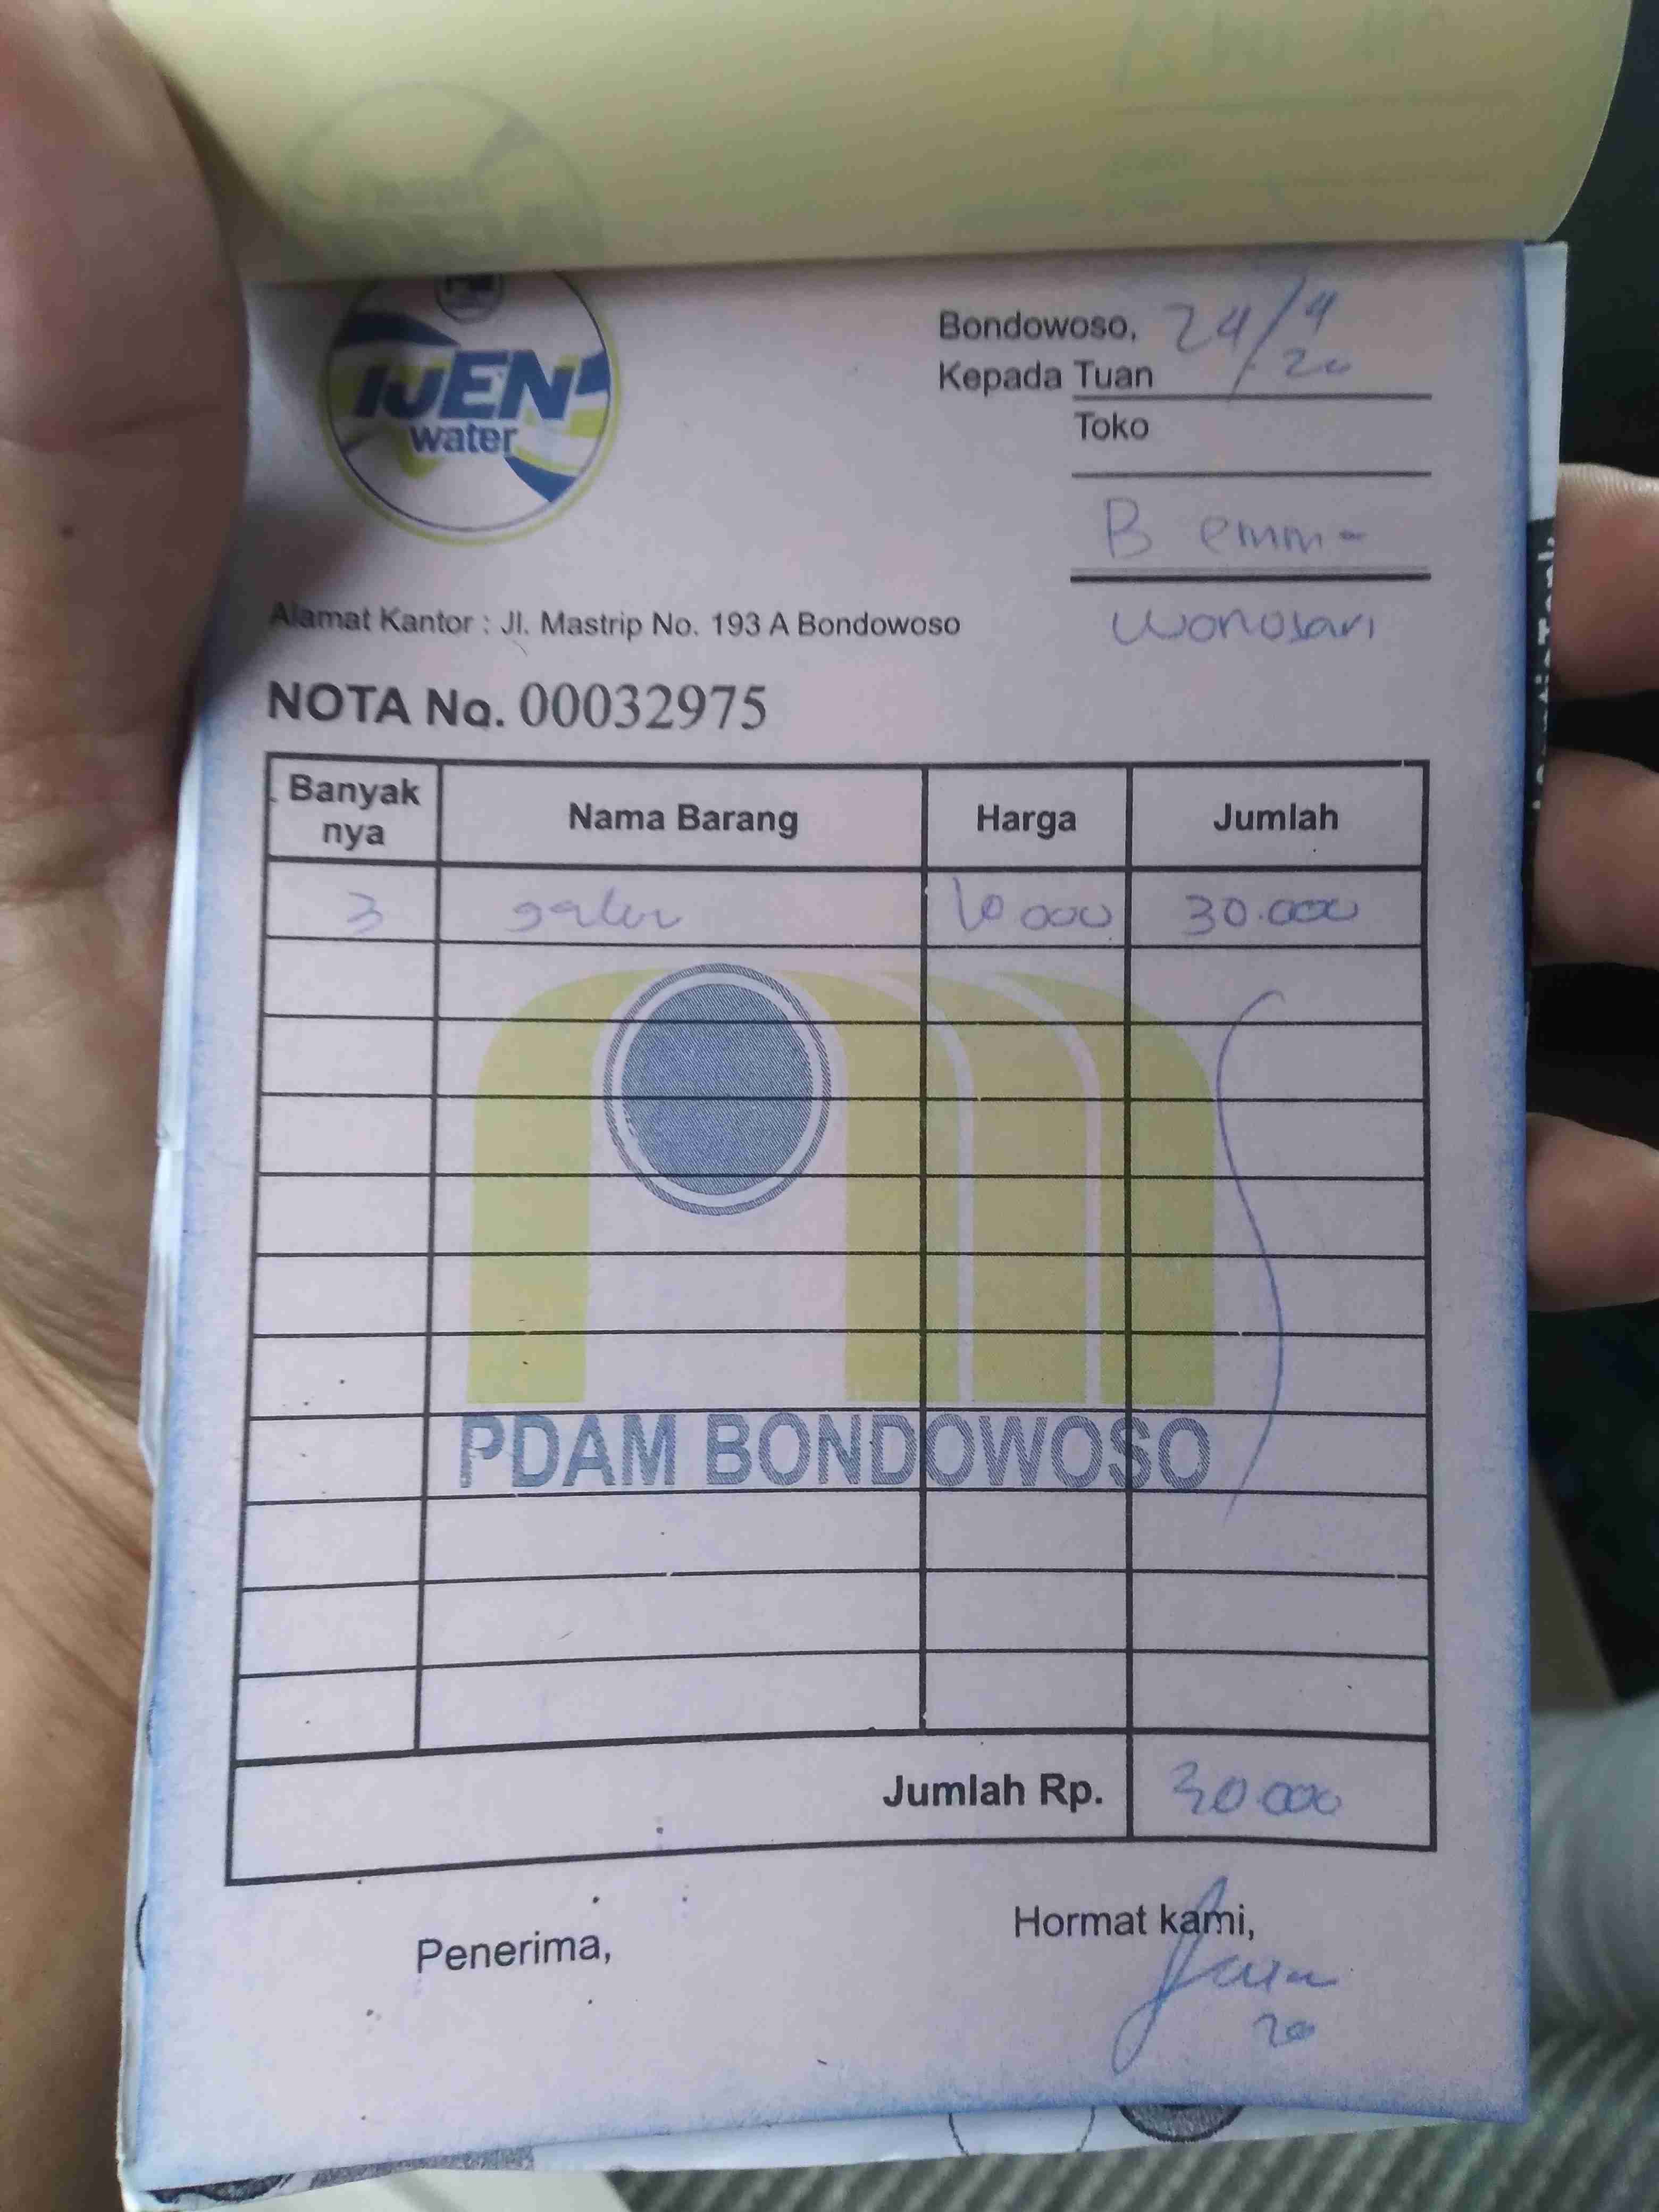 IJEN
water
Bondowoso, 24/4
20
Kepada Tuan
Toko
B emma
Wonosari
Alamat Kantor : Jl. Mastrip No. 193 A Bondowoso
NOTA No. 00032975
Banyak nya Nama Barang Harga Jumlah
3 galon 10 000 30.000
PDAM BONDOWOSO
Jumlah Rp. 30.000
Penerima, Hormat kami,
20